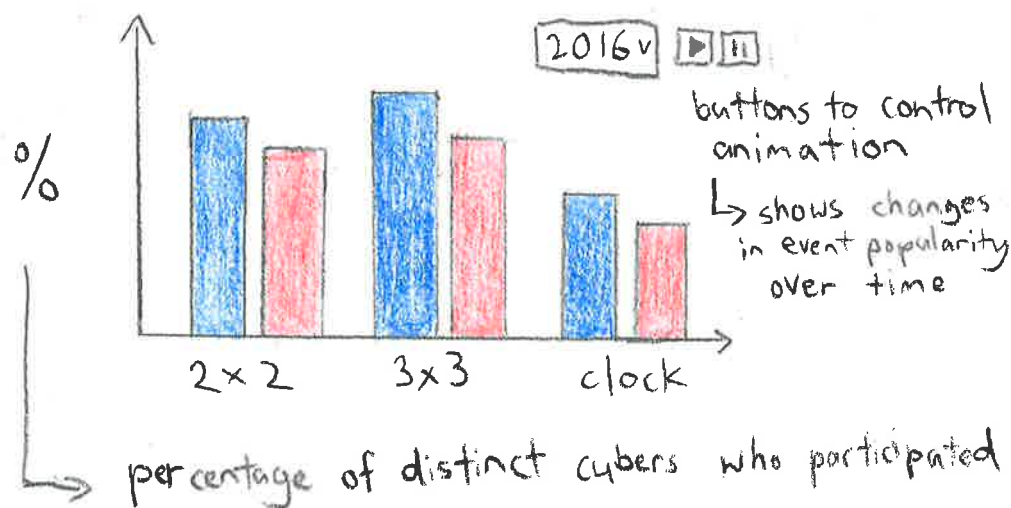 2016 v
buttons to control
animation
shows changes
in event popularity
over time
%
2x2
3x3
clock
percentage of distinct cubers who participated